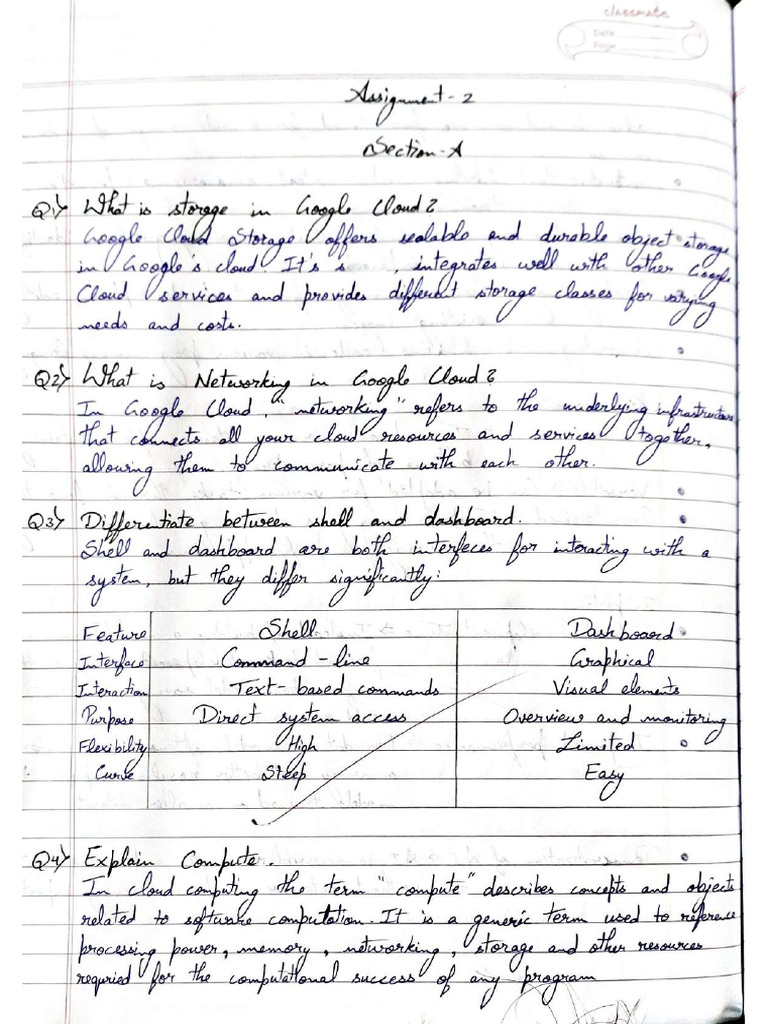 classmate
Date
Page
Assignment-2
Section-A
Q1) What is storage in Google Cloud?
Google Cloud Storage offers scalable and durable object storage
in Google's cloud It's s , integrates well with other Google
Cloud services and provides different storage classes for varying
needs and costs.
Q2) What is Networking in Google Cloud?
In Google Cloud, "networking" refers to the underlying infrastructure
that connects all your cloud resources and services together,
allowing them to communicate with each other.
Q3) Differentiate between shell and dashboard.
Shell and dashboard are both interfeces for interacting with a
system, but they differ significantly:
Feature Shell Dashboard
Interface Command-line Graphical
Interaction Text-based commands Visual elements
Purpose Direct system access Overview and monitoring
Flexibility High Limited
Curve Steep Easy
Q4) Explain Compute.
In cloud computing the term "compute" describes concepts and objects
related to software computation. It is a generic term used to reference
processing power, memory, networking, storage and other resources
requried for the computational success of any program